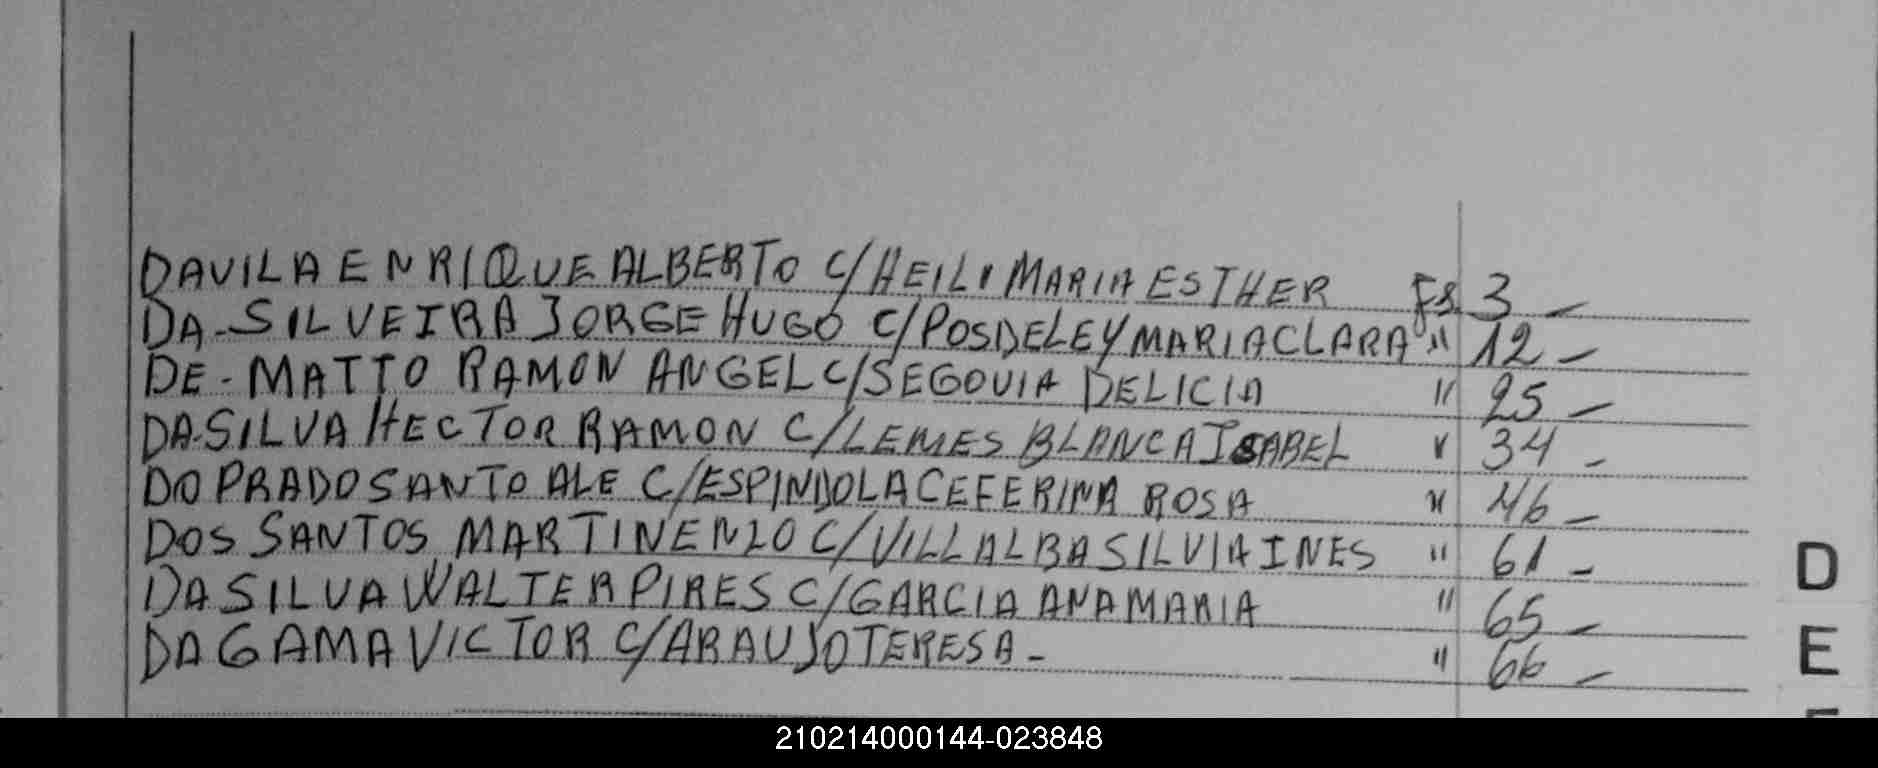 DAVILA ENRIQUE ALBERTO C/HEILI MARIA ESTHER FS. 3 -
DA-SILVEIRA JORGE HUGO C/POSDELEY MARIA CLARA " 12 -
DE-MATTO RAMON ANGEL C/SEGOVIA DELICIA " 25 -
DA-SILVA HECTOR RAMON C/LEMES BLANCA ISABEL " 34 -
DO PRADO SANTO ALE C/ESPINDOLA CEFERINA ROSA " 46 -
DOS SANTOS MARTIN ENZO C/VILLALBA SILVIA INES " 61 -
DA SILVA WALTER PIRES C/GARCIA ANA MARIA " 65 -
D
DA GAMA VICTOR C/ARAUJO TERESA - " 66 -
E
210214000144-023848